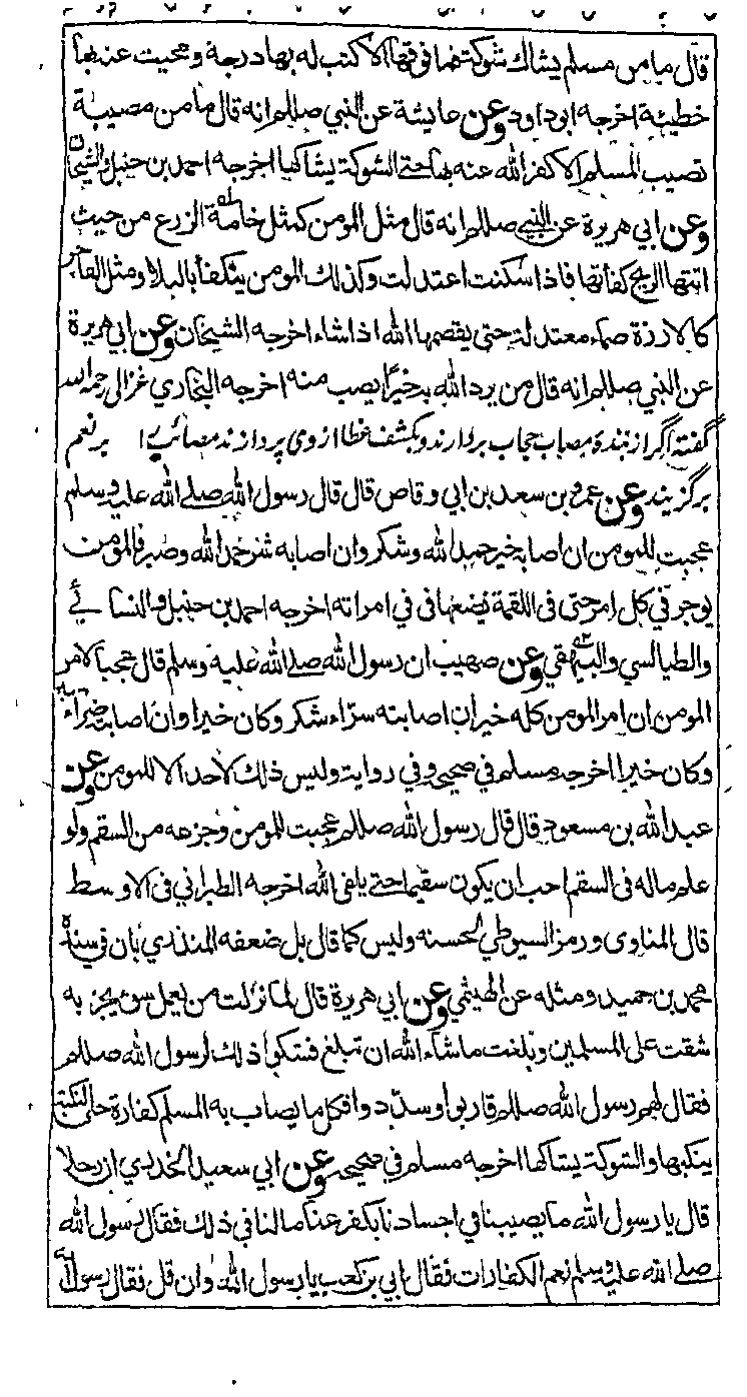 قال ما من مسلم يشاك شوكة فما فوقها الا كتب له بها درجة ومحيت عنه بها
خطيئة اخرجه ابو داود وعن عايشة عن النبي صللم انه قال ما من مصيبة
تصيب المسلم الا كفر الله عنه بها حتى الشوكة يشاكها اخرجه احمد بن حنبل والشيخان
وعن ابي هريرة عن النبي صللم انه قال مثل المومن كمثل خامة الزرع من حيث
اتتها الريح كفاتها فاذا سكنت اعتدلت وكذلك المومن يتكفأ بالبلاء ومثل الفاجر
كالارزة صماء معتدلة حتى يقصمها الله اذا شاء اخرجه الشيخان وعن ابي هريرة
عن النبي صللم انه قال من يرد الله به خيرًا يصب منه اخرجه البخاري غزالى رحمه الله
گفته اگر از بندۀ مصاب حجاب بردارند و بكشف غطا از وى پردازند مصائب را بر نعم
برگزيند وعن عمرو بن سعد بن ابي وقاص قال قال رسول الله صلے الله عليه وسلم
عجبت للمومن ان اصابه خير حمد الله وشكر وان اصابه شر حمد الله وصبر فالمومن
يوجر في كل امر حتى فى اللقمة يضعها فى في امراته اخرجه احمد بن حنبل والنسائے
والطيالسي والبيهقي وعن صهيب ان رسول الله صلے الله عليه وسلم قال عجبا لامر
المومن ان امر المومن كله خير ان اصابته سرّاء شكر وكان خيرا وان اصابته ضراء صبر
وكان خيرا اخرجه مسلم في صحيحه وفي رواية وليس ذلك لاحد الا للمومن وعن
عبد الله بن مسعود قال قال رسول الله صللم عجبت للمومن وجزعه من السقم ولو
علم ماله فى السقم احب ان يكون سقيما حتى يلقى الله اخرجه الطبراني فى الاوسط
قال المناوى ورمز السيوطي لحسنه وليس كما قال بل ضعفه المنذري بان في سنده
محمد بن حميد ومثله عن الهيثمي وعن ابي هريرة قال لما نزلت من يعمل سوء يجز به
شقت على المسلمين وبلغت ما شاء الله ان تبلغ فشكوا ذلك لرسول الله صللم
فقال لهم رسول الله صللم قاربوا وسدّدوا فكل ما يصاب به المسلم كفارة حتى النكبة
ينكبها والشوكة يشاكها اخرجه مسلم في صحيحه وعن ابي سعيد الخدري ان رجلا
قال يا رسول الله ما يصيبنا في اجسادنا يكفر عنا ما لنا في ذلك فقال رسول الله
صلے الله عليه وسلم نعم الكفارات فقال ابي بن كعب يا رسول الله وان قل فقال رسول الله